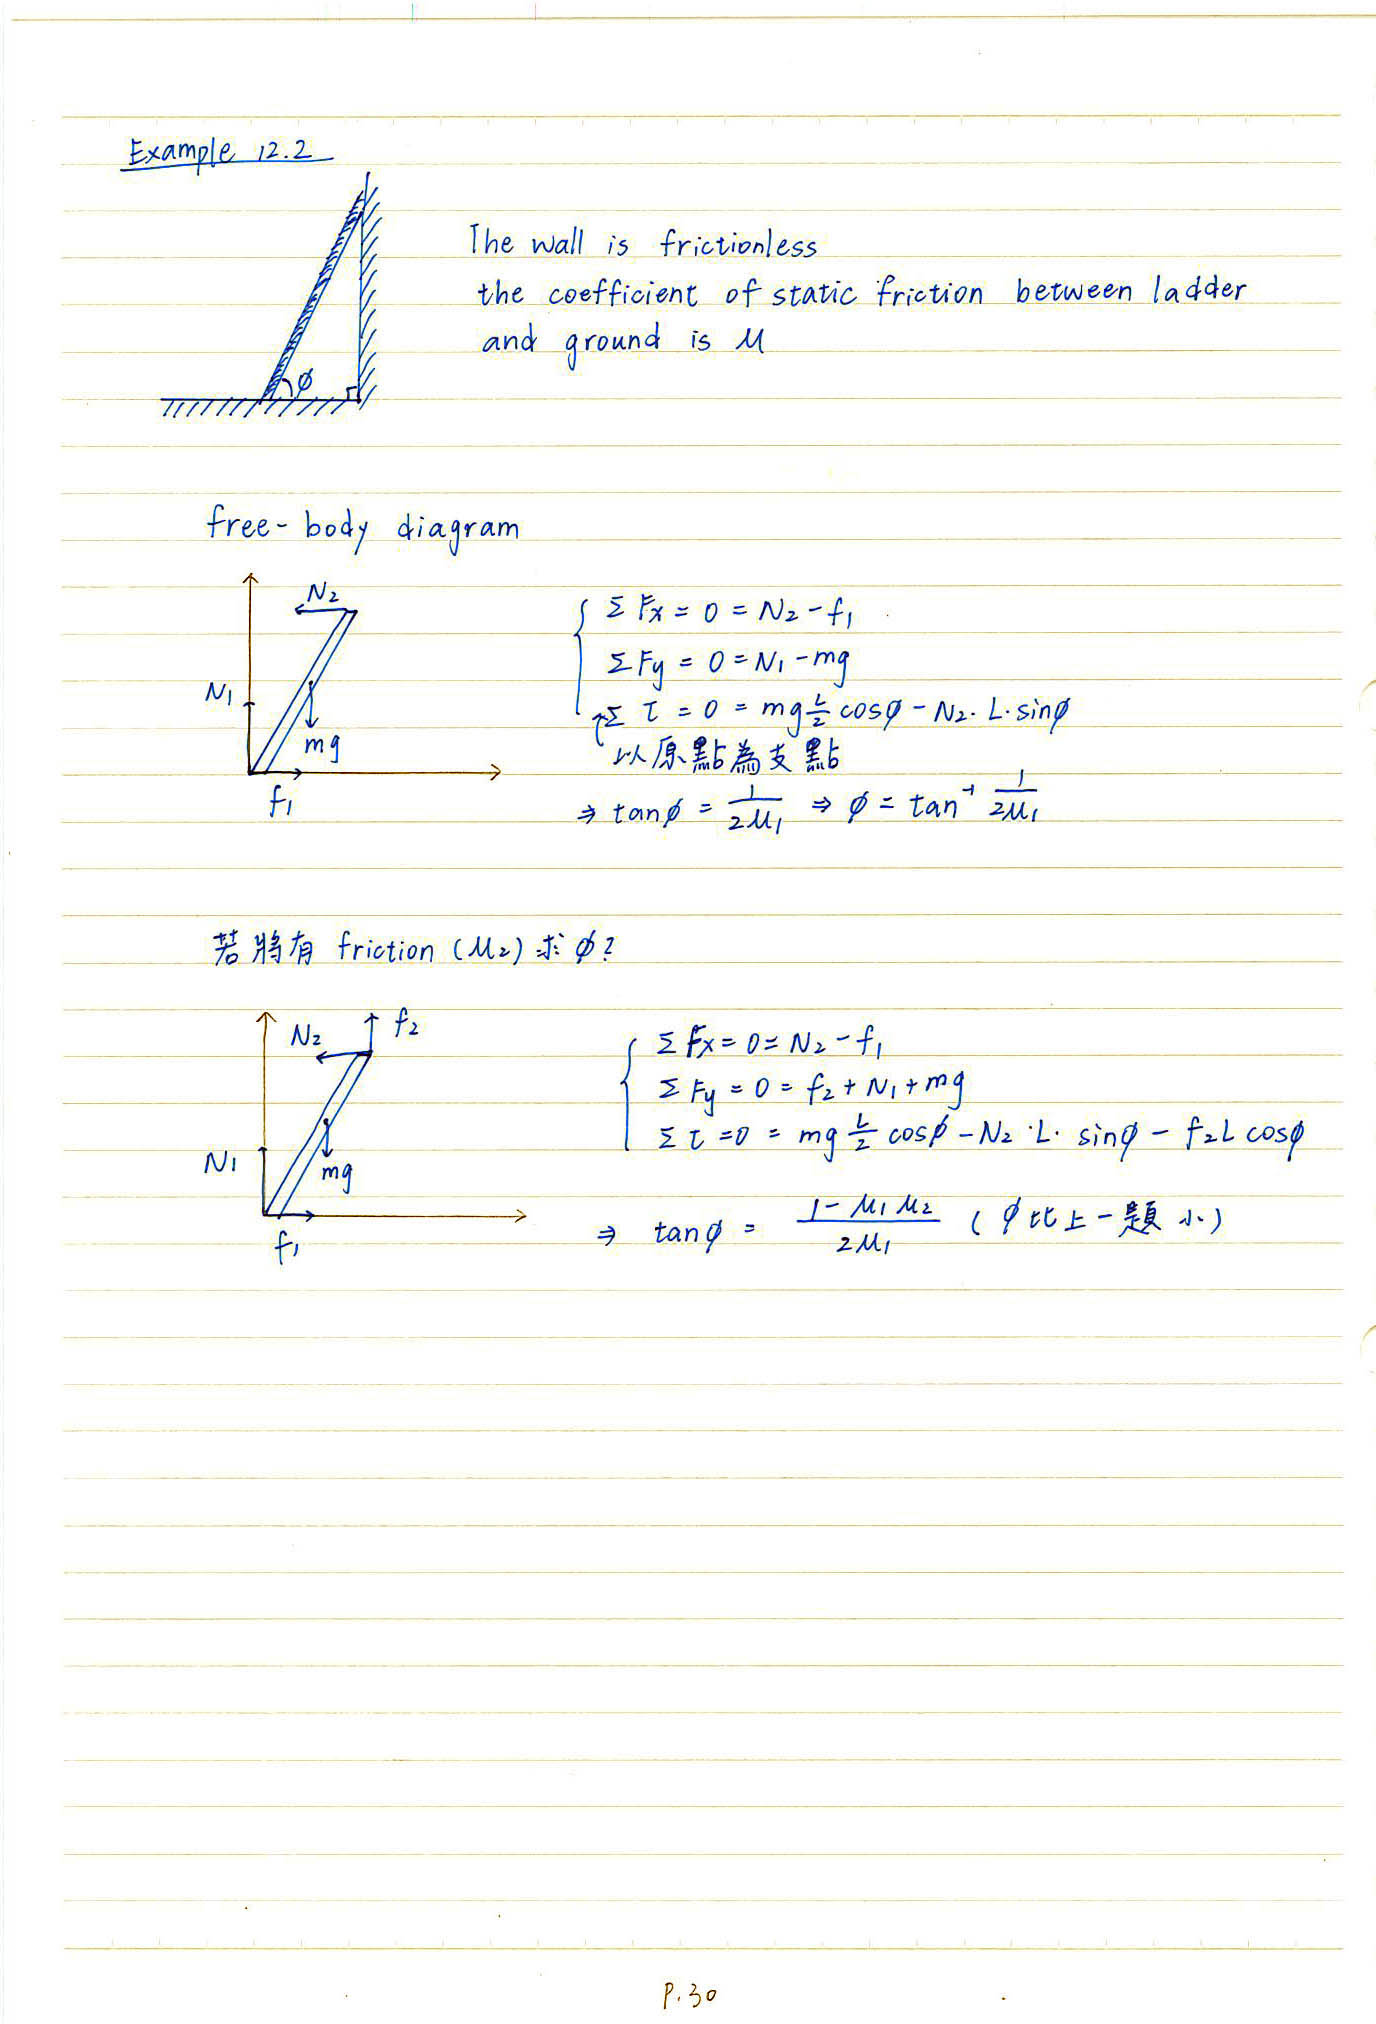 Example 12.2
The wall is frictionless
the coefficient of static friction between ladder
and ground is μ
φ
free-body diagram
N₂
N₁
mg
f₁
ΣFx = 0 = N₂ - f₁
ΣFy = 0 = N₁ - mg
Στ = 0 = mg L/2 cosφ - N₂. L. sinφ
以原點為支點
⇒ tanφ = 1/2μ₁ ⇒ φ = tan⁻¹ 1/2μ₁
若將有 friction (μ₂) 求 φ?
N₂
f₂
N₁
mg
f₁
ΣFx = 0 = N₂ - f₁
ΣFy = 0 = f₂ + N₁ + mg
Στ = 0 = mg L/2 cosφ - N₂ · L · sinφ - f₂L cosφ
⇒ tanφ = 1 - μ₁μ₂/2μ₁ (φ比上一題小)
P.30